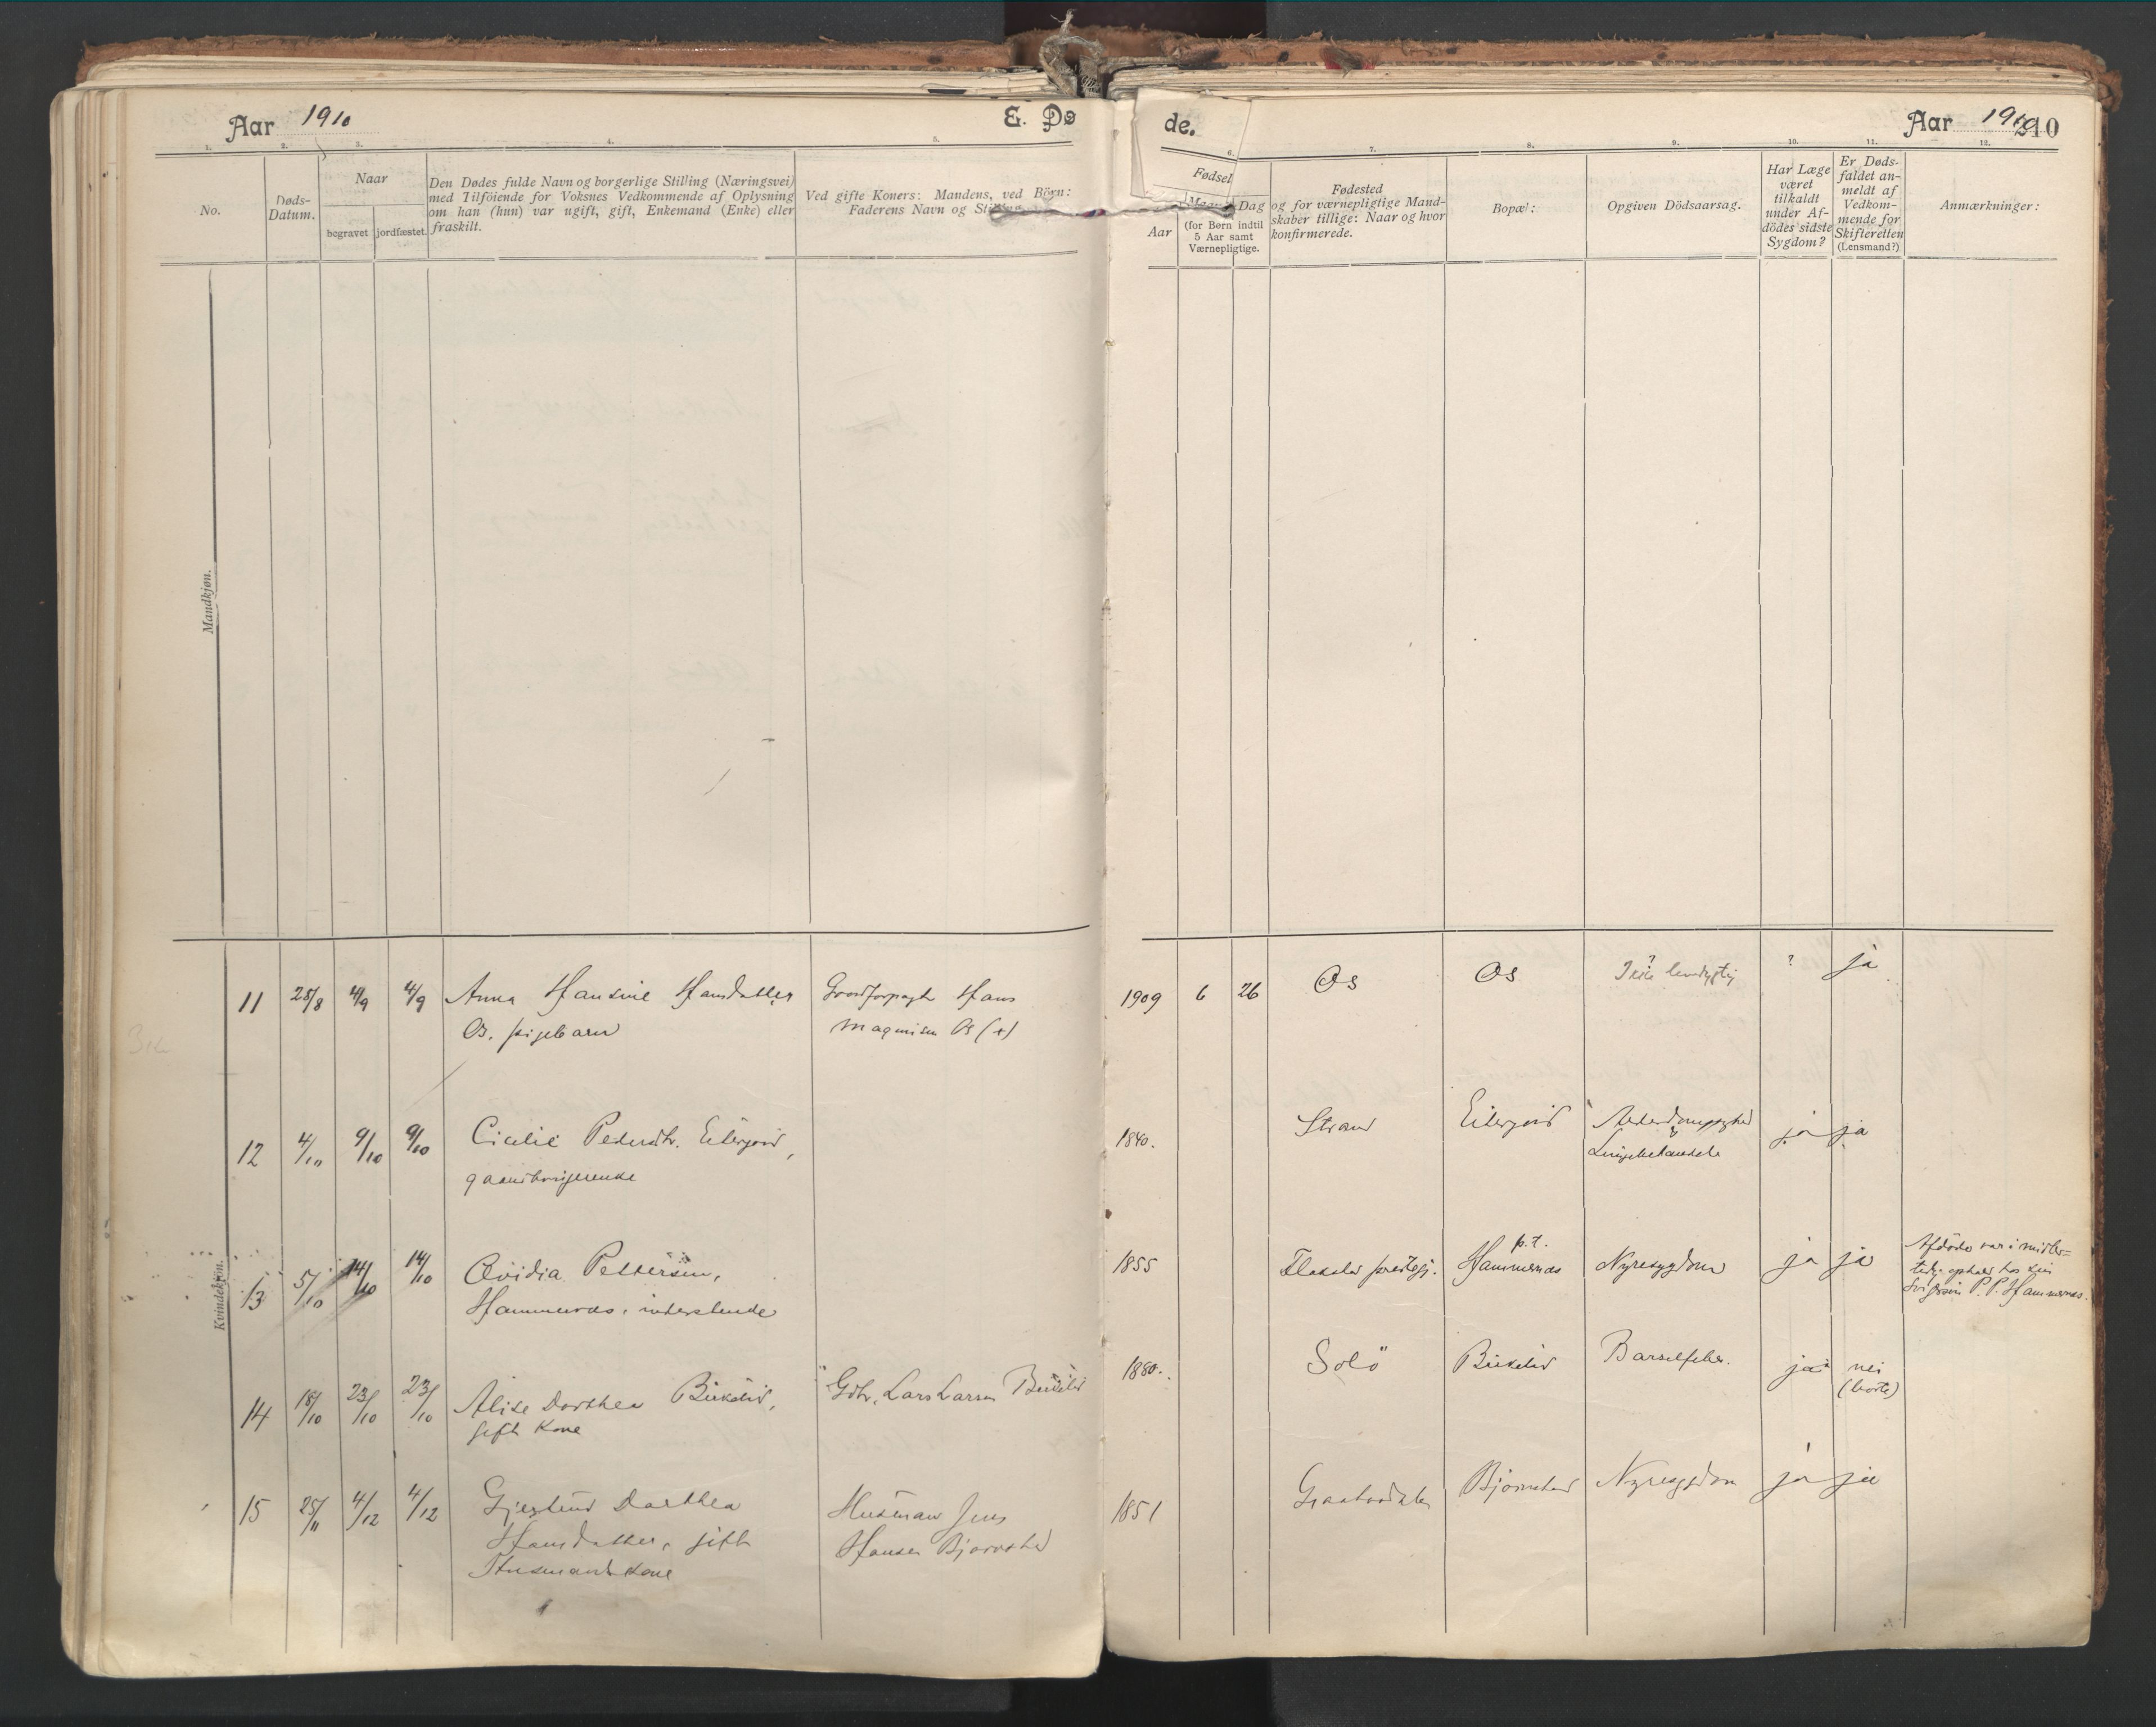 Aar 1910
E. Dø
de.
Aar 1910
210
1. 2. 3. 4. 5. 6. 7. 8. 9. 10. 11. 12.
No.
Døds-
Datum.
Naar
begravet jordfæstet.
Den Dødes fulde Navn og borgerlige Stilling (Næringsvei)
med Tilföiende for Voksnes Vedkommende af Oplysning
om han (hun) var ugift, gift, Enkemand (Enke) eller
fraskilt.
Ved gifte Koners: Mandens, ved Börn:
Faderens Navn og Stilling
Fødsel
Aar
Dag
(for Børn indtil
5 Aar samt
Værnepligtige.
Fødested
og for værnepligtige Mand-
skaber tillige: Naar og hvor
konfirmerede.
Bopæl:
Opgiven Dödsaarsag.
Har Læge
været
tilkaldt
under Af-
dödes sidste
Sygdom?
Er Døds-
faldet an-
meldt af
Vedkom-
mende for
Skifteretten
(Lensmand?)
Anmærkninger:
Mandkjøn.
Kvindekjön.
11 28/8 4/9 4/9 Anna Hansine Hansdatter
Os. pigebarn
Hans
Magnisen Os (+)
1909 6 26 Os Os ? ? ja
12 4/10 9/10 9/10 Cicelie Pedersdtr. Eitergjord,
1840. Strand ja ja
13 5/10 14/10 14/10 Ovidia Pettersen,
Hammernæs,
1855 p.t.
Hammernæs Nyresygdom ja ja
P. P. Hammernæs.
14 18/10 23/10 23/10 Alise Dorthea Birkelid,
gift Kone
Gbr. Lars Larsen Birkelid
1880. Solö Birkelid Barselfeber. ja nei
(borte)
15 25/11 4/12 4/12 Gjertrud Dorthea
Hansdatter, gift
Husmandskone
Husman Jens
Hansen Bjørnstad
1851 Bjørnstad Nyresygdom ja ja